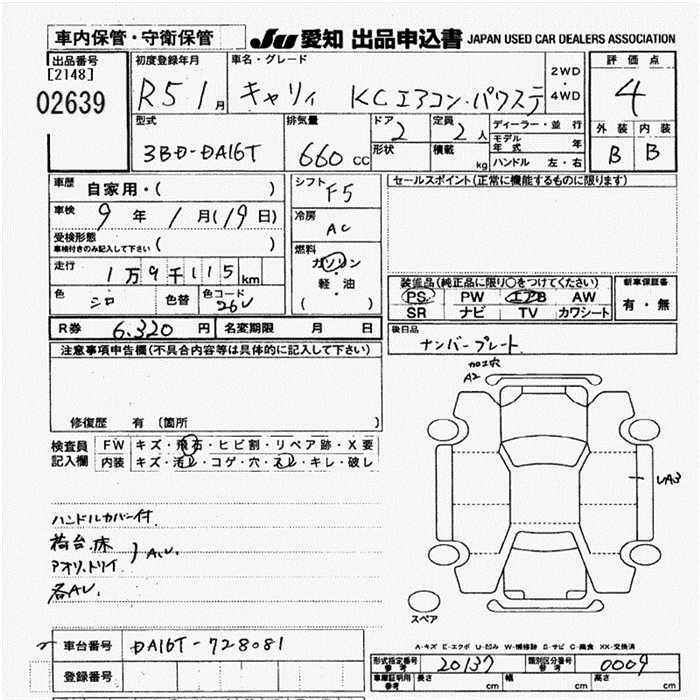 車内保管・守衛保管
JU 愛知 出品申込書 JAPAN USED CAR DEALERS ASSOCIATION
出品番号
[2148]
02639
初度登録年月
R5 1月
車名・グレード
キャリィ KCエアコン・パワステ
2WD
・
4WD
評価点
4
外装 内装
B B
型式
3BD-DA16T
排気量
660 CC
ドア
2
形状
定員
2人
積載
kg
ディーラー・並行
モデル
年式 年
ハンドル 左・右
車歴 自家用・( )
車検 9年 1月(19日)
受検形態
車検付きのみ記入して下さい ( )
走行 1万9千115km
色 シロ 色替 色コード 26U
シフト F5
冷房 AC
燃料
ガソリン
・
軽・油
( )
セールスポイント(正常に機能するものに限ります)
装備品(純正品に限り○をつけてください)
PS PW エアB AW
SR ナビ TV カワシート
新車保証書
有・無
R券 6.320円 名変期限 月 日
後日品
ナンバープレート
注意事項申告欄(不具合内容等は具体的に記入して下さい)
修復歴 有 〔箇所 〕
加工穴
A2
検査員
記入欄
FW キズ・飛石・ヒビ割・リペア跡・X要
内装 キズ・汚レ・コゲ・穴・スレ・キレ・破レ
UA3
ハンドルカバー付
荷台.床
アオリ.トリイ
)AU.
各AU.
スペア
A-キズ E-エクボ U-凹み W-補修跡 S-サビ C-腐食 XX-交換済
車台番号 DA16T-728081
登録番号
形式指定番号
参考
20137
類別区分番号
参考
0004
車庫証明用
参考
長さ cm 幅 cm 高さ cm